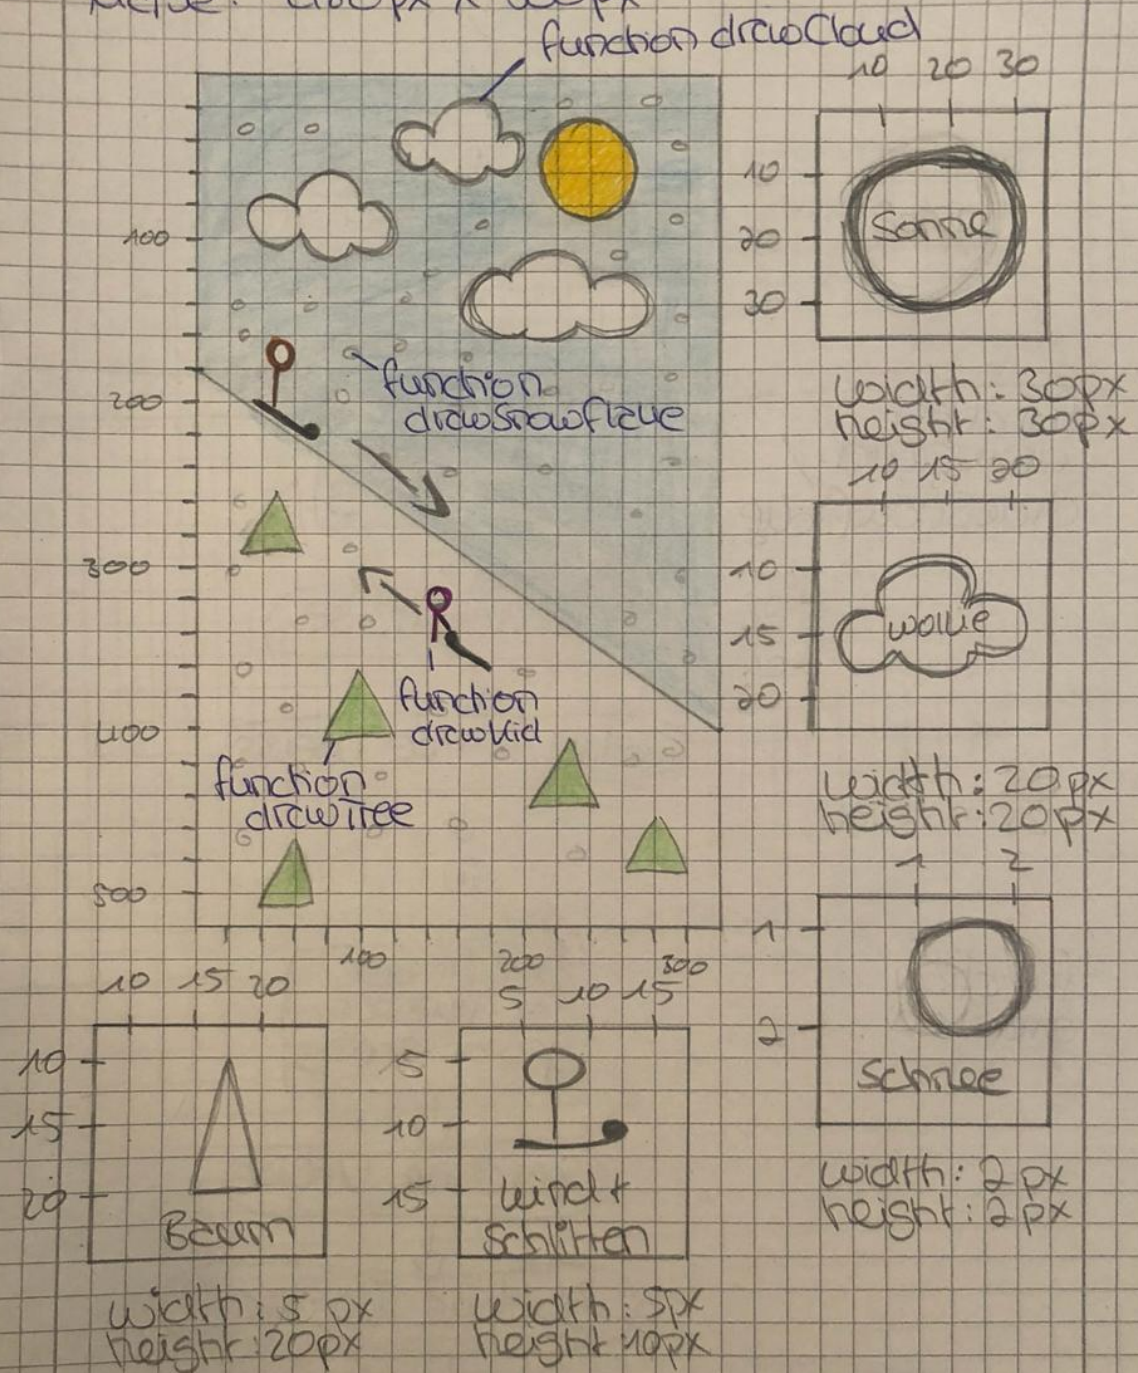 function drawCloud
10 20 30
10
20
30
Sonne
width: 30px
height: 30px
100
200
300
400
500
function
drawSnowflake
function
drawKid
function
drawTree
100 200 300
10 15 20
10
15
20
Wolke
width: 20px
height: 20px
1 2
1
2
Schnee
width: 2px
height: 2px
10 15 20
10
15
20
Baum
width: 5 px
height: 20px
5 10 15
5
10
15
Kind +
Schlitten
width: 5px
height 10px